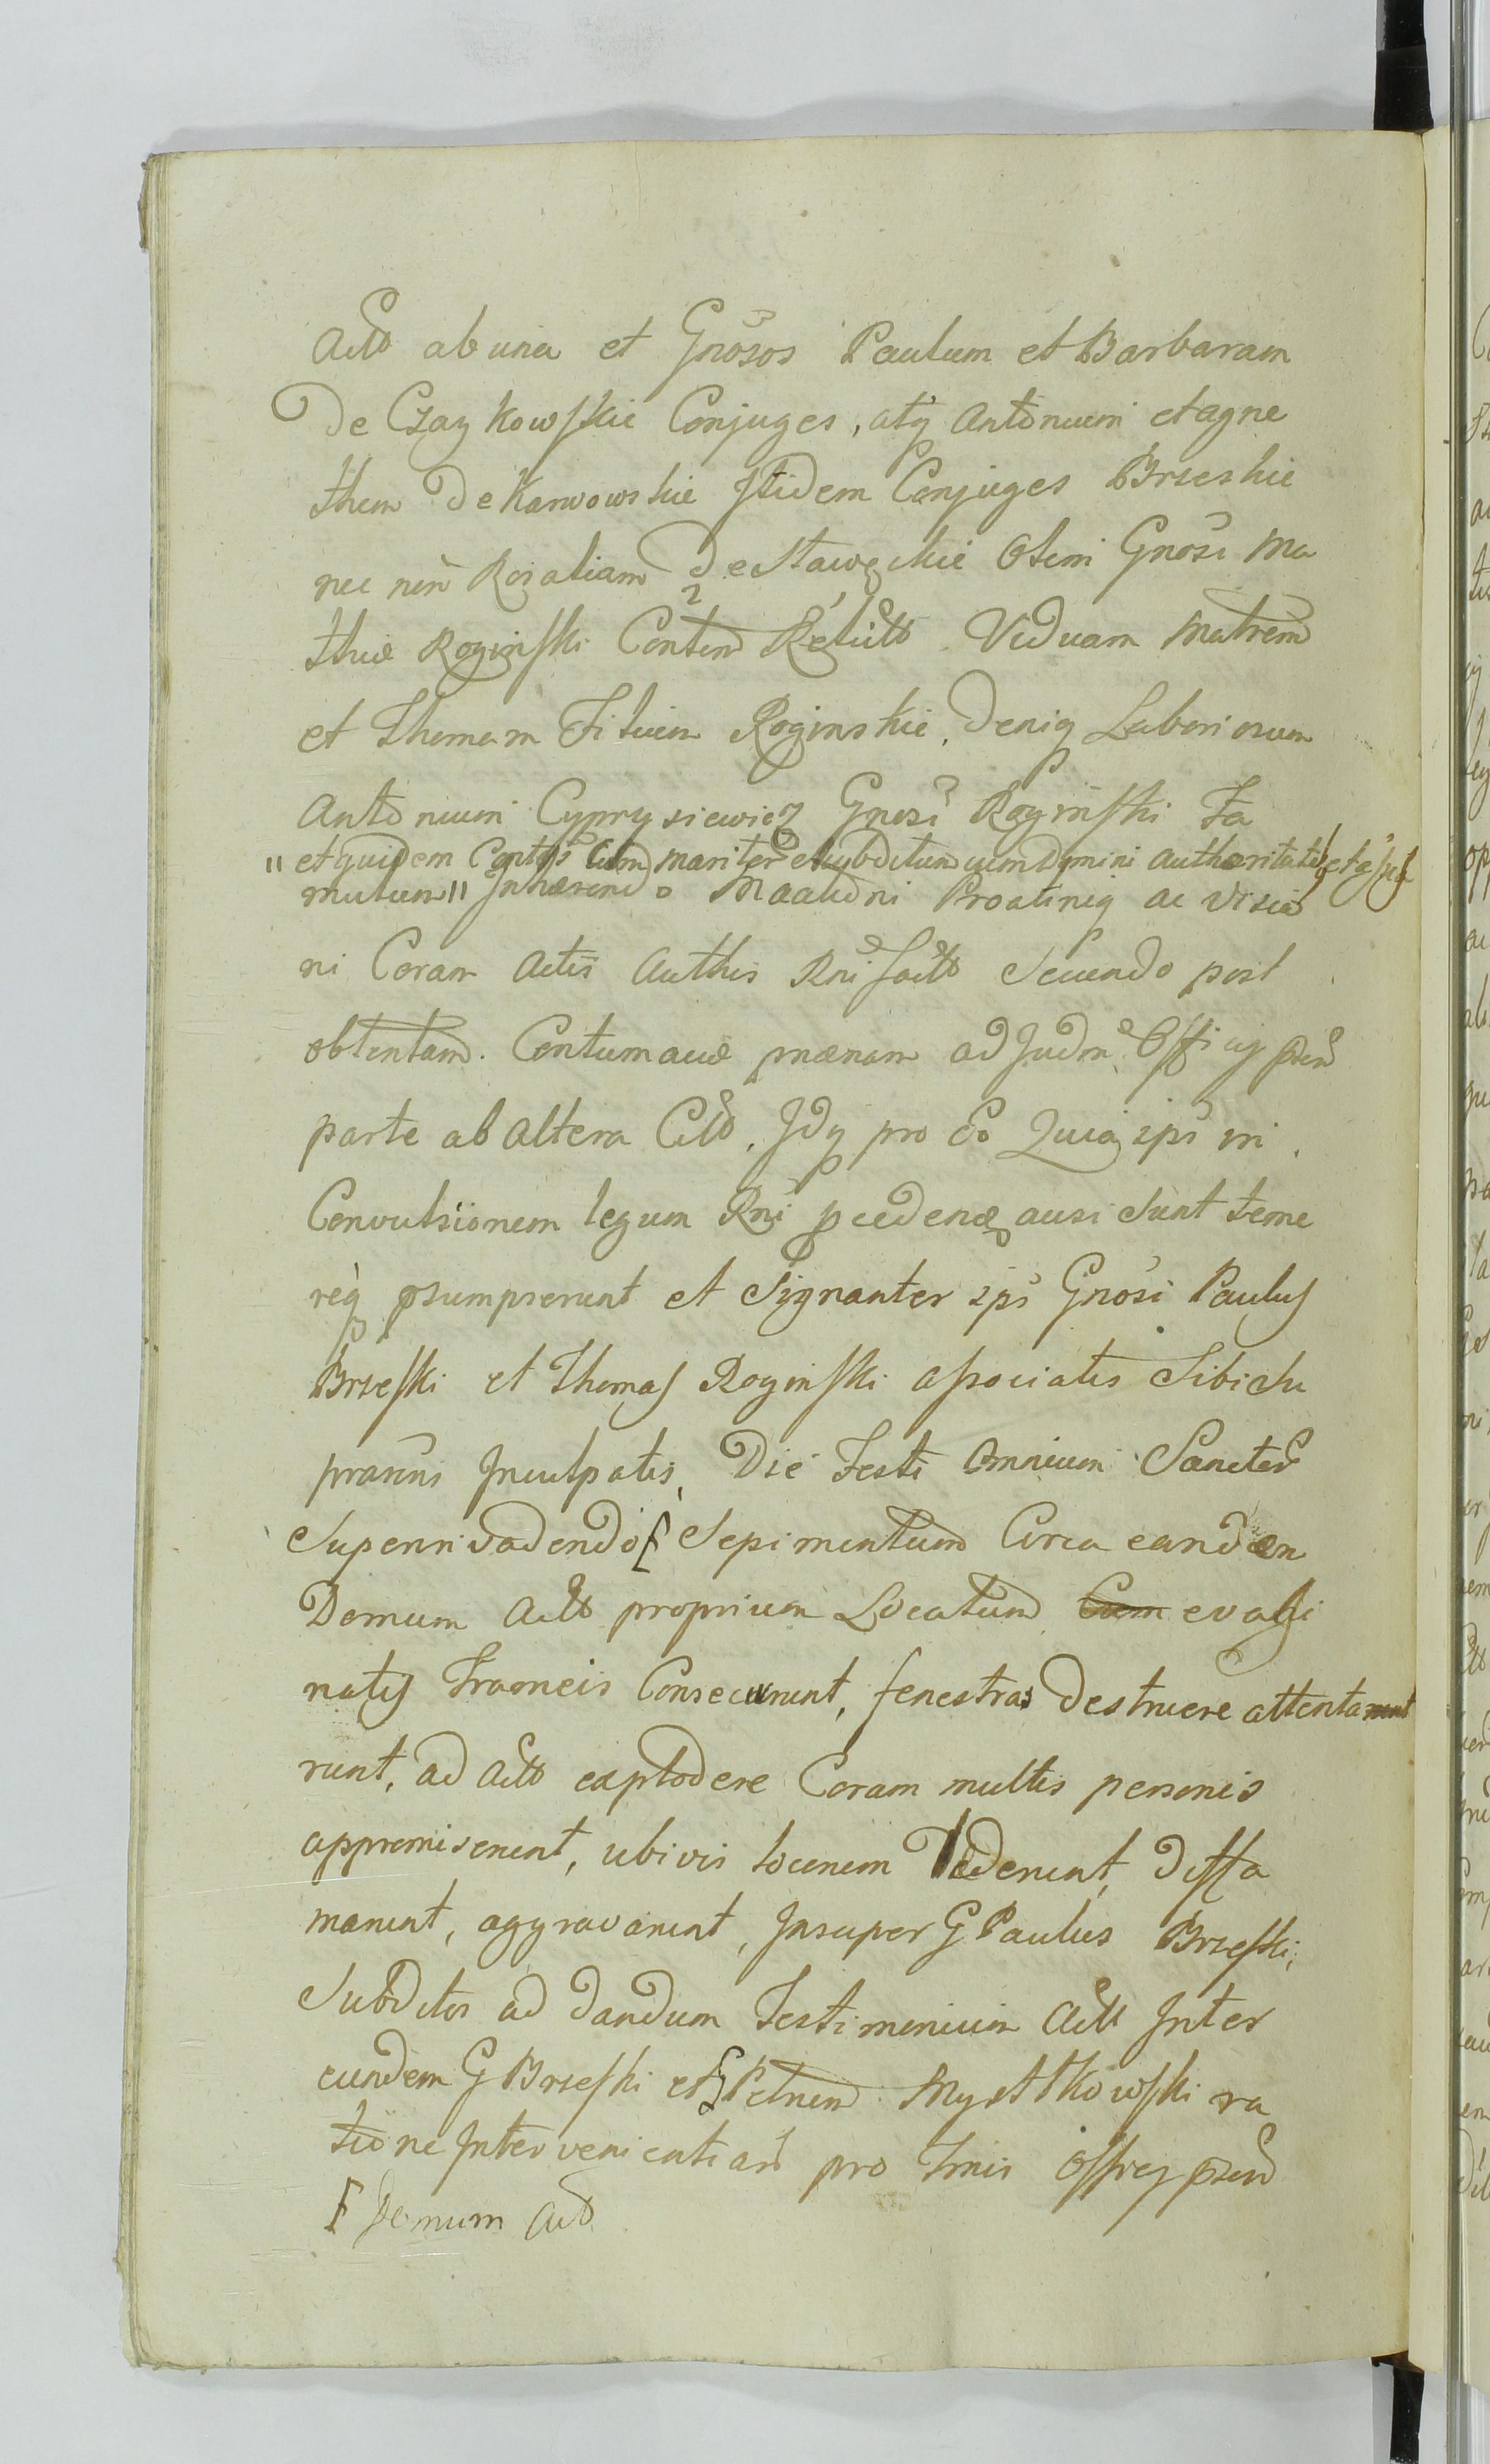 Actō ab una et Gnosos Paulum et Barbaram
De Czaykowskie Conjuges, atq Antonium et agne
them De Karwowskie Itidem Conjuges Brzeskie
nec non Rozaliam De Stawęckie Olim Gnosi Ma
thiæ Roginski Relictō Viduam Matrem
et Thomam Filium Roginskie, Deniq Laboriosum
Antonium Cyprysiewicz Gnosi Roginski Fa
" et quidem cum mariter et subditum cum Domini authoritate
mulum" Inhærendo Proatinq ac Visio
ni Coram Actis Authis Rni factō Secundo post
obtentam Contumaciæ pænam ad Judm Officy
parte ab altera Citō. Idq pro Eo Quia ipsi in
Convulsionem legum Rni ausi Sunt teme
req psumpserunt et Signanter ipsi Gnosi Paulus
Brzeski et Thomas Roginski associatis Sibi Su
prannis Inculpatis, Die Festi Omnium Sanctor
Superinvadendo [ Sepimentum Circa eandem
Domum Actō proprium Locatum Cum evagi
natis Frameis Consecurunt, fenestras Destruere attentarunt
runt, ad Actō explodere Coram multis personis
appromiserunt, ubivis locorum Diffa
marunt, aggravarunt, Insuper G Paulus Brzeski,
Subditos ad dandum Testimonium Actō Inter
eundem G Brzeski et G Petrum Mystkowski ra
tione Intervenientiar pro Tmis Officy
[ Domum Actō